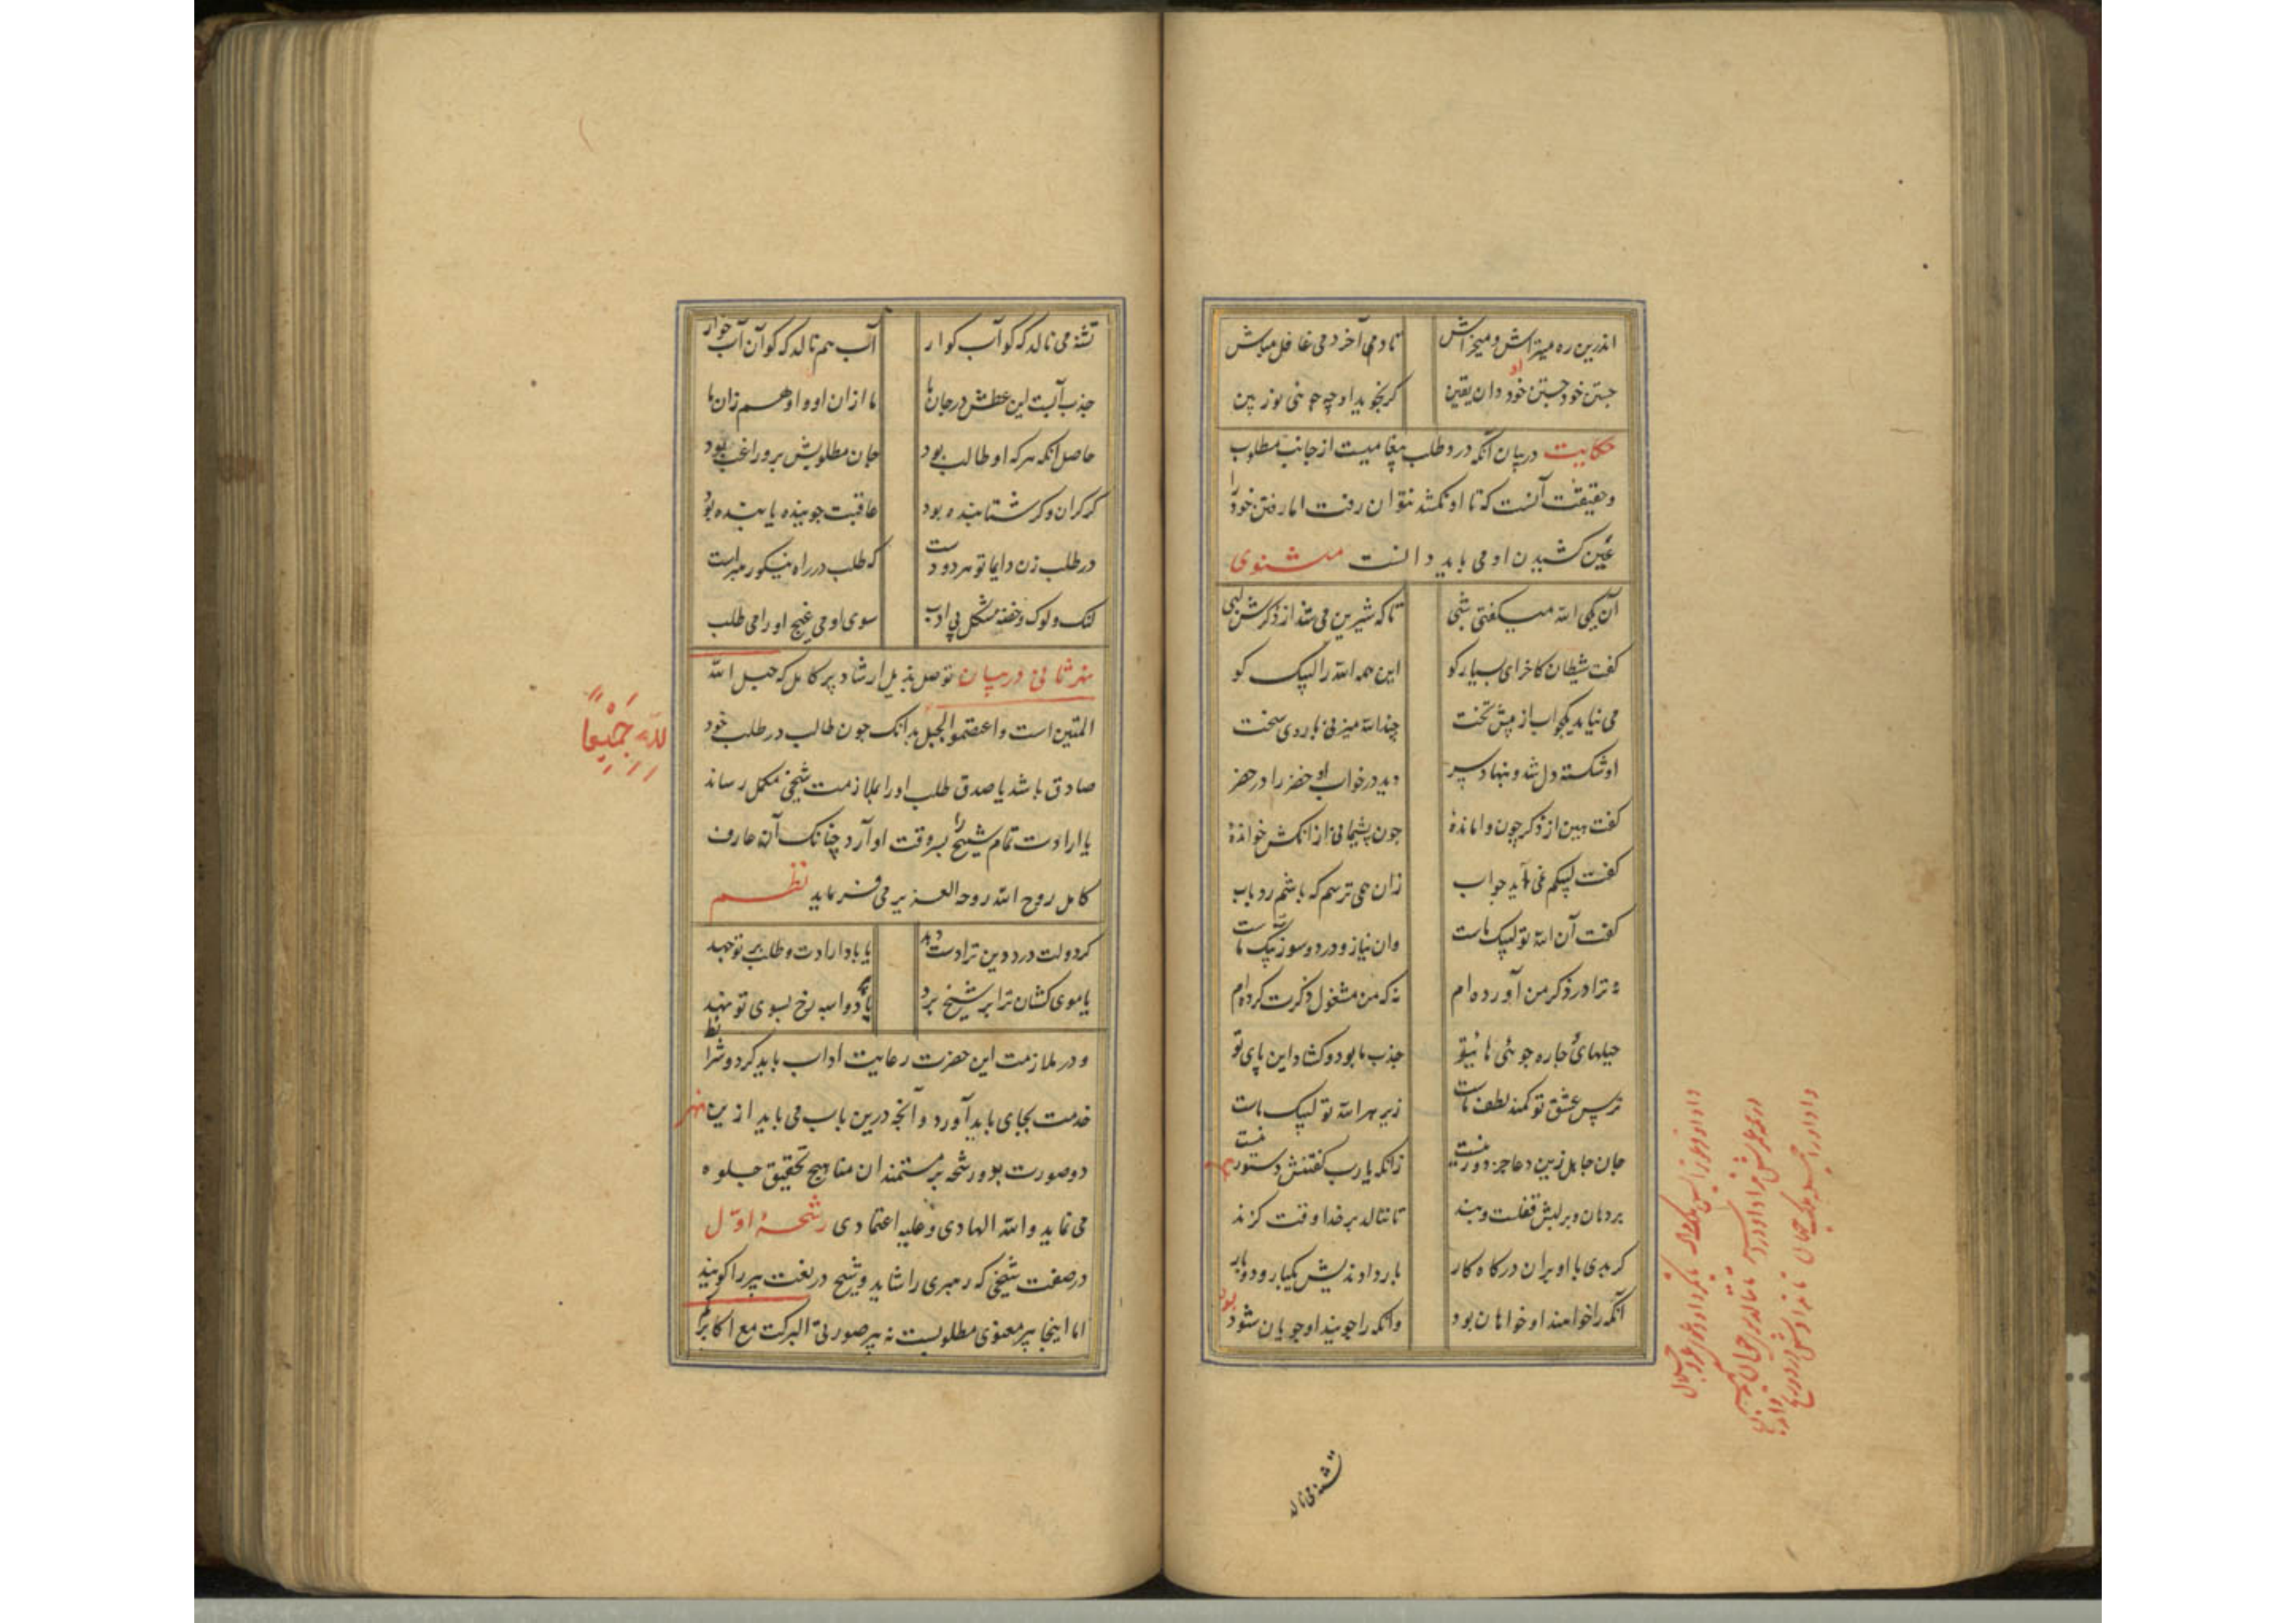 اندرین ره میتراش و میخراش تا دمی آخر دمی غافل مباش
جستن خود جستن خود دان یقین گر نجوید او چه جوئی نوز بین
او
حکایت در بیان آنکه درد طلب پیغامیست از جانب مطلوب
و حقیقت آنست که تا او نکشد نتوان رفت اما رفتن خود را
عین کشیدن او می باید دانست مثنوی
آن یکی الله میگفتی شبی تا که شیرین می شد از ذکرش لبی
گفت شیطان کاخر ای بسیار گو این همه الله را لبیک کو
می نیاید یکجواب از پیش تخت چند الله میزنی با روی سخت
او شکسته دل شد و بنهاد سر دید در خواب او خضر را در خضر
گفت هین از ذکر چون وامانده چون پشیمانی از آنکش خوانده
گفت لبیکم نمی آید جواب زان همی ترسم که باشم رد باب
گفت آن الله تو لبیک ماست وان نیاز و درد و سوز پیک ماست
نه ترا در ذکر من آورده ام نه که من مشغول ذکرت کرده ام
حیلهای چاره جوئی های تو جذب ما بود و گشاد این پای تو
ترس عشق تو کمند لطف ماست زیر هر الله تو لبیک ماست
جان جاهل زین دعا جز دور نیست زانکه یارب گفتنش دستور نیست
بر دهان و بر لبش قفلست و بند تا ننالد بر خدا وقت گزند
گر بدی با او بران درگاه کار بار دادندیش یکبار و دو بار
آنکه را خواهند او خواهان بود وانکه را جویند او جویان شود
بود
تشنه می ناله
تشنه می نالد که کو آب کوار آب هم نالد که کو آن آب خوار
جذب آبست این عطش در جان ما ما ازان او و او هم زان ما
حاصل آنکه هر که او طالب بود جان مطلوبش برو راغب بود
گر گران و گر شتابنده بود عاقبت جوینده یابنده بود
در طلب زن دایما تو هر دو دست که طلب در راه نیکو رهبر است
لنک و لوک و خفته شکل بی ادب سوی او می غیج او را می طلب
نهر ثانی در بیان توصل بذیل ارشاد پیر کامل که حبل الله
المتین است و اعتصموا بحبل بدانک چون طالب در طلب خود
لله جَمیعاً
صادق باشد یا صدق طلب او را بملازمت شیخی مکمل رساند
یا ارادت تمام شیخ را بروقت او آرد چنانک آن عارف
کامل روح الله روحه العزیر می فرماید نظم
گر دولت درد دین ترا دست دهد یا باد ارادت و طلب بر تو جهد
یا موی کشان ترا بر شیخ برد یا دواسبه رخ بسوی تو نهد
و در ملازمت این حضرت رعایت اداب باید کرد و شرائط
خدمت بجای باید آورد و آنچه درین باب می باید ازین نهر
دو صورت بدو رشحه بر مستمندان مناهج تحقیق جلوه
می نماید والله الهادی و علیه اعتمادی رشحهٔ اوّل
در صفت شیخی که رهبری را شاید و شیخ در لغت پیر را گویند
اما اینجا پیر معنوی مطلوبست نه پیر صوری البرکت مع اکابرکم